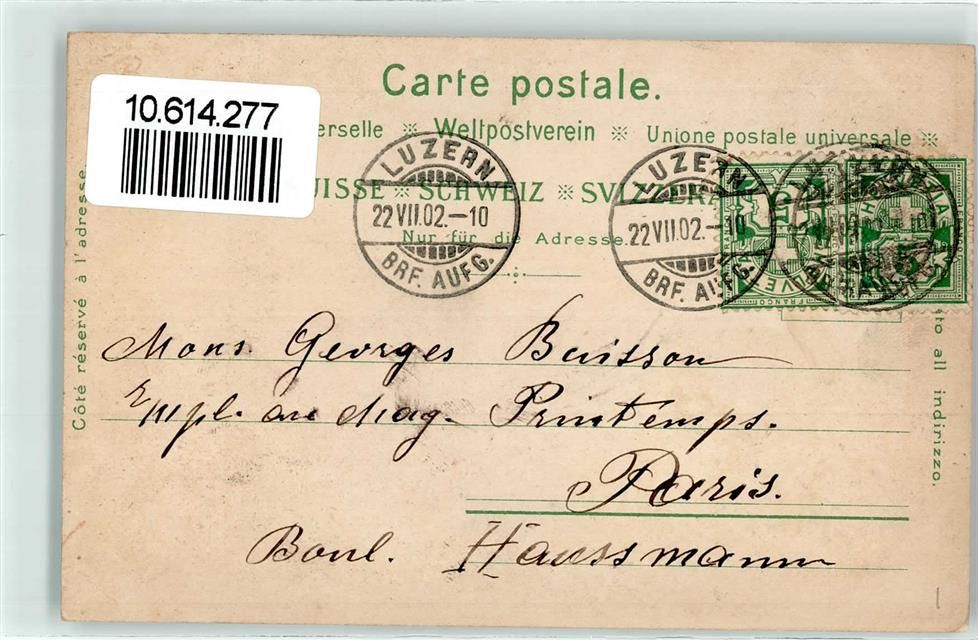 Carte postale.
10.614.277
erselle ※ Weltpostverein ※ Unione postale universale ※
UISSE ※ SCHWEIZ ※ SVIZZERA
Nur für die Adresse.
LUZERN
22 VII.02.–10
BRF. AUFG.
LUZERN
22 VII.02.–10
BRF. AUFG.
FRANCO
Côté réservé à l'adresse
Mons. Georges Buisson
Empl. au Mag. Printemps.
Paris.
Boul. Haussmann
all indirizzo.